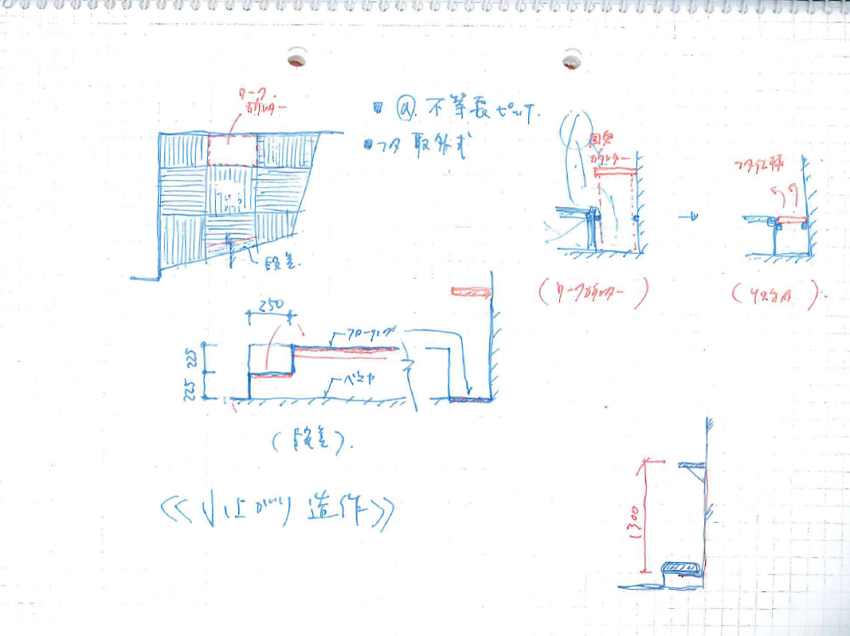 ワーク
カウンター
■ ⓐ. 不等長ピット.
■フタ 取外式
段差.
固定
カウンター
フタ仕様
(ワークカウンター)
250
フローリング
225
225
ベニヤ
(段差).
1300
《小上がり 造作》